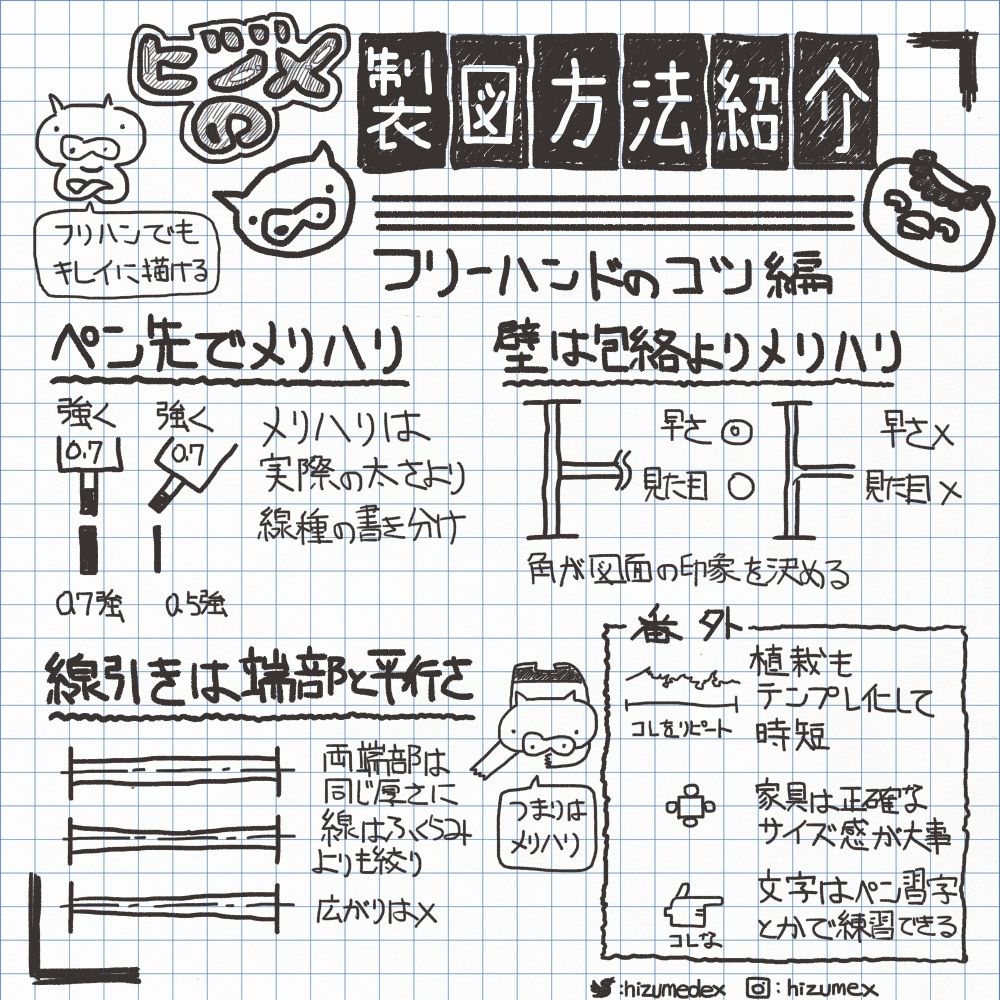 ヒヅメの
製図方法紹介
フリハンでも
キレイに描ける
フリーハンドのコツ編
ペン先でメリハリ
強く 強く
0.7 0.7
0.7強 0.5強
メリハリは
実際の太さより
線種の書き分け
壁は包絡よりメリハリ
早さ◎ 早さ×
見た目○ 見た目×
角が図面の印象を決める
線引きは端部と平行さ
両端部は
同じ厚さに
線はふくらみ
よりも絞り
広がりは×
つまりは
メリハリ
番外
コレをリピート
植栽も
テンプレ化して
時短
家具は正確な
サイズ感が大事
コレな
文字はペン習字
とかで練習できる
:hizumedex :hizumex